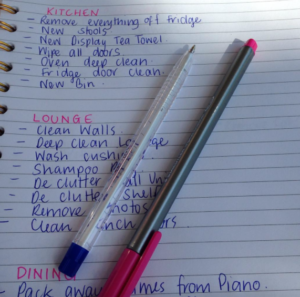 KITCHEN
- Remove everything off fridge
- New stools
- New Display Tea Towel
- Wipe all doors
- Oven deep clean
- Fridge door clean
- New Bin.
LOUNGE
- Clean Walls
- Deep Clean
- Wash
- Shampoo
- De clutter
- De clutter
- Remove
- Clean
DINING
- Pack away from Piano.